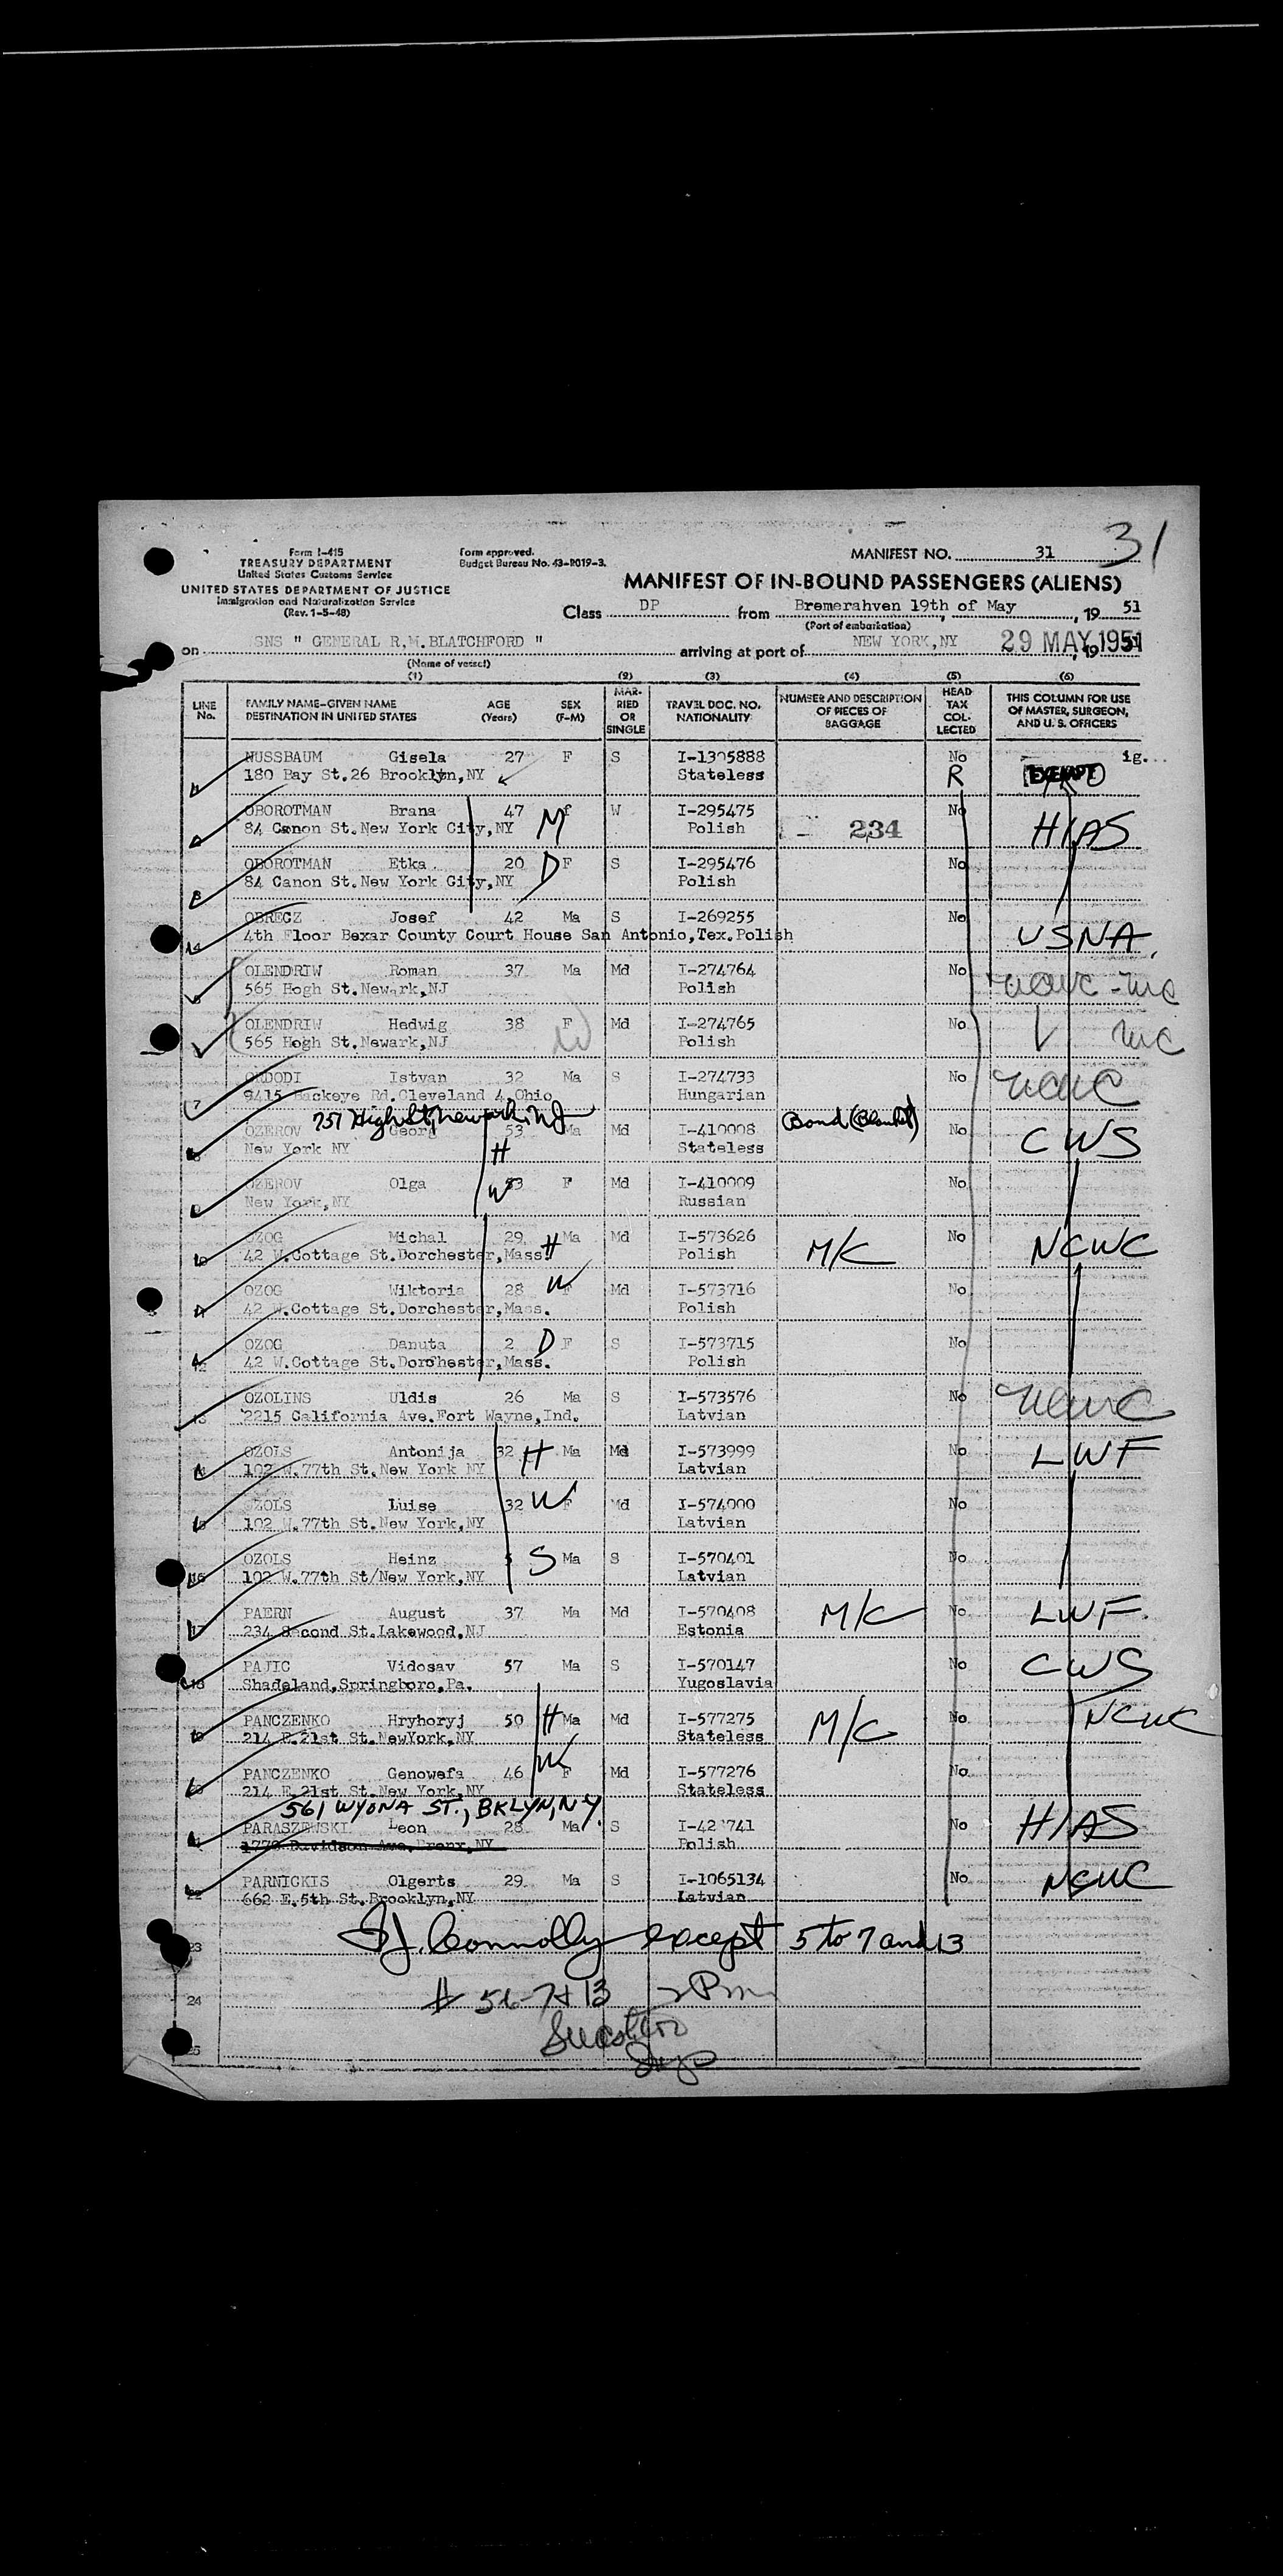 31
Form I-415
TREASURY DEPARTMENT
United States Customs Service
UNITED STATES DEPARTMENT OF JUSTICE
Immigration and Naturalization Service
(Rev. 1-5-48)
Form approved.
Budget Bureau No. 43-R019-3.
MANIFEST NO. 31
MANIFEST OF IN-BOUND PASSENGERS (ALIENS)
Class DP from Bremerahven 19th of May, 19 51
(Port of embarkation)
on SNS " GENERAL R.M.BLATCHFORD " arriving at port of NEW YORK,NY 29 MAY 1951, 19
(Name of vessel)
(1) (2) (3) (4) (5) (6)
LINE No. FAMILY NAME—GIVEN NAME DESTINATION IN UNITED STATES AGE (Years) SEX (F-M) MARRIED OR SINGLE TRAVEL DOC. NO. NATIONALITY NUMBER AND DESCRIPTION OF PIECES OF BAGGAGE HEAD TAX COLLECTED THIS COLUMN FOR USE OF MASTER, SURGEON, AND U. S. OFFICERS
NUSSBAUM Gisela 27 F S I-1305888 No ig...
180 Bay St.26 Brooklyn,NY Stateless R EXEMPT
OBOROTMAN Brana 47 M f W I-295475 No
84 Canon St.New York City,NY Polish 234 HIAS
3 OBOROTMAN Etka 20 D F S I-295476 No
84 Canon St.New York City,NY Polish
OBRECZ Josef 42 Ma S I-269255 No
14 4th Floor Bexar County Court House San Antonio,Tex.Polish USNA
OLENDRIW Roman 37 Ma Md I-274764 No
565 Hogh St.Newark,NJ Polish
OLENDRIW Hedwig 38 F W Md I-274765 No
565 Hogh St.Newark,NJ Polish
ORDODI Istvan 32 Ma S I-274733 No NCWC
7 9415 Backeye Rd.Cleveland 4,Ohio Hungarian
757 High St, Newark, NJ Bond (Blanket)
OZEROV Georg 53 Ma Md I-410008 No CWS
New York NY H Stateless
OZEROV Olga 53 W F Md I-410009 No
New York,NY Russian
OZOG Michal 29 H Ma Md I-573626 M/C No NCWC
10 42 W.Cottage St.Dorchester,Mass. Polish
OZOG Wiktoria 28 W F Md I-573716 No
42 W.Cottage St.Dorchester,Mass. Polish
OZOG Danuta 2 D F S I-573715 No
12 42 W.Cottage St.Dorchester,Mass. Polish
OZOLINS Uldis 26 Ma S I-573576 No NCWC
13 2215 California Ave.Fort Wayne,Ind. Latvian
OZOLS Antonija 32 H Ma Md I-573999 No LWF
102 W.77th St.New York NY Latvian
OZOLS Luise 32 W F Md I-574000 No
102 W.77th St.New York,NY Latvian
OZOLS Heinz 5 S Ma S I-570401 No
16 102 W.77th St/New York,NY Latvian
PAERN August 37 Ma Md I-570408 M/C No LWF.
234 Second St.Lakewood,NJ Estonia
PAJIC Vidosav 57 Ma S I-570147 No CWS
18 Shadeland,Springboro,Pa. Yugoslavia
PANCZENKO Hryhoryj 50 H Ma Md I-577275 M/C No NCWC
214 E.21st St.NewYork,NY Stateless
PANCZENKO Genowefa 46 W F Md I-577276 No
20 214 E.21st St.New York,NY Stateless
561 WYONA ST., BKLYN, N.Y.
PARASZEWSKI Leon 28 Ma S No HIAS
1770 Davidson Ave.Bronx,NY Polish
PARNICKIS Olgerts 29 Ma S I-1065134 No NCWC
22 662 E.5th St.Brooklyn,NY Latvian
Connolly except 5 to 7 and 13
23
24
25